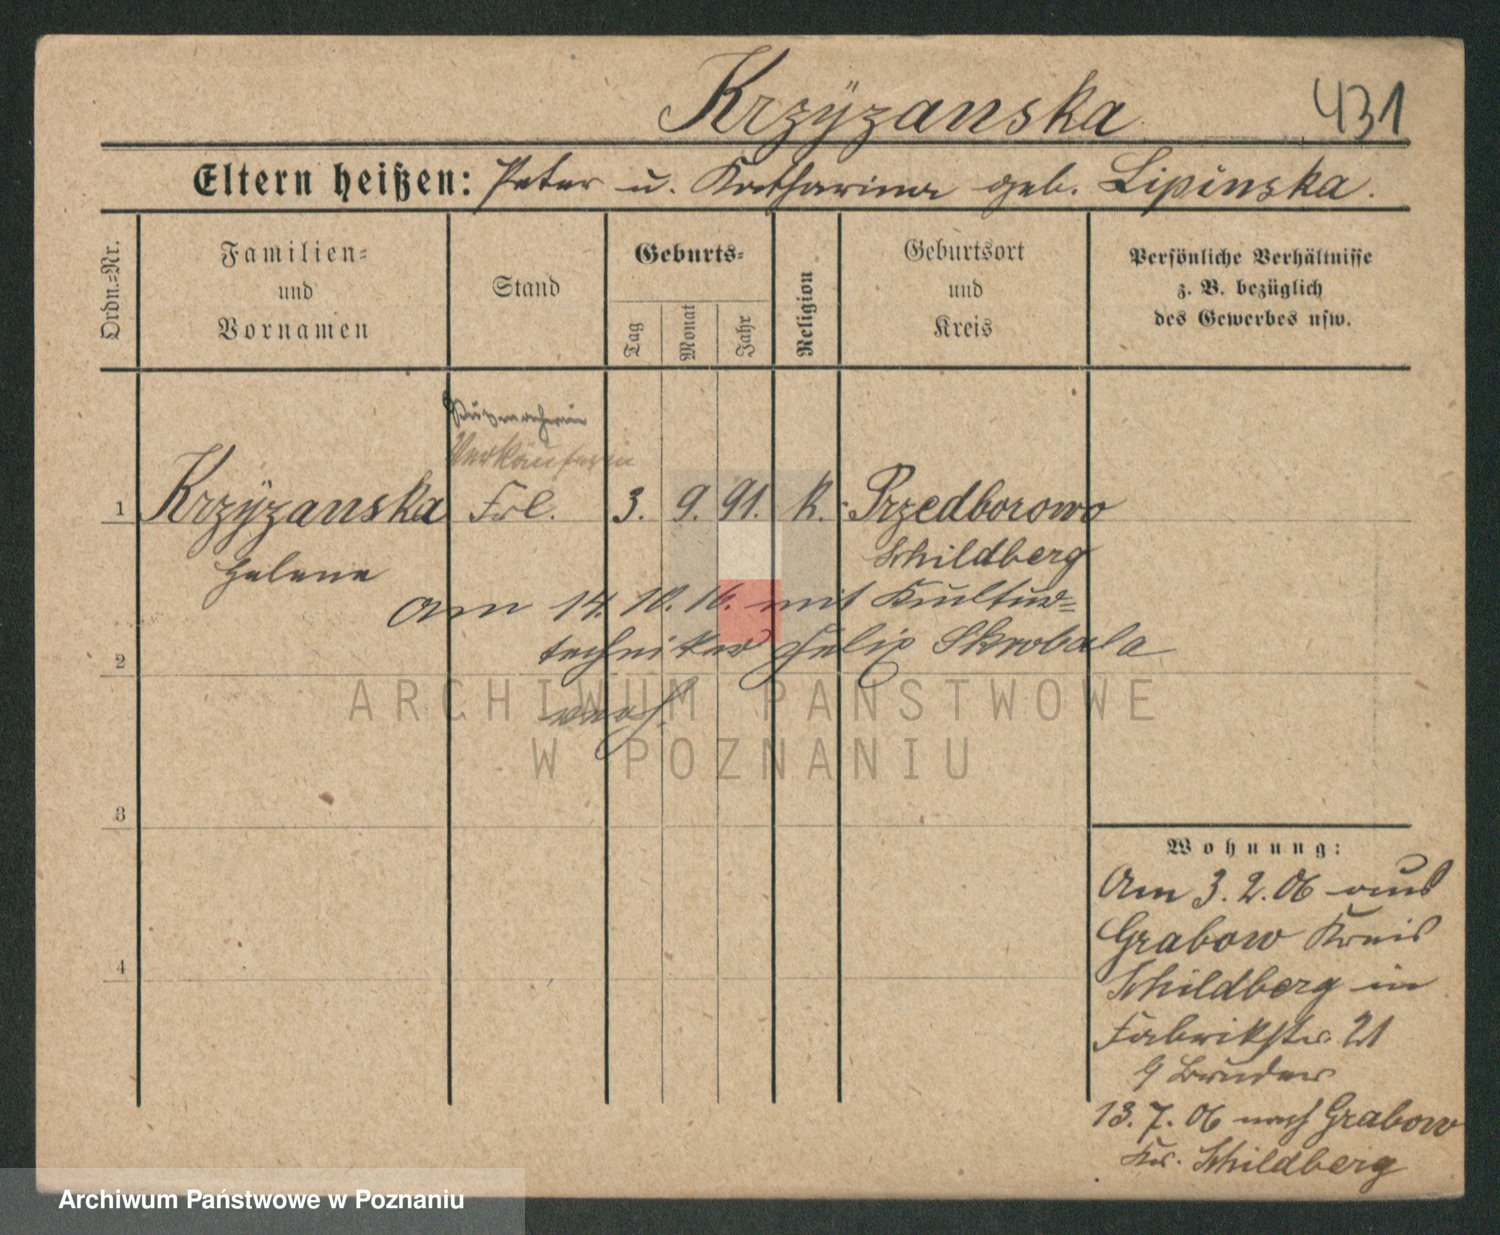 Krzÿzanska
431
Eltern heißen: Peter u. Katharina geb. Lipinska.
Ordn.=Nr.
Familien=
und
Vornamen
Stand
Geburts=
Tag
Monat
Jahr
Religion
Geburtsort
und
Kreis
Persönliche Verhältnisse
z. B. bezüglich
des Gewerbes usw.
Putzmacherin
Verkäuferin
1 Krzÿzanska Frl. 3. 9. 91. K. Przedborowo
Helene Schildberg
am 14. 10. 16. mit Kultur=
techniker Felix Skrobala
2
verh.
ARCHIWUM PAŃSTWOWE
W POZNANIU
3
4
Wohnung:
Am 3. 2. 06 aus
Grabow Kreis
Schildberg in
Fabrikstr. 21
Bruder
13. 7. 06 nach Grabow
Kr. Schildberg
Archiwum Państwowe w Poznaniu